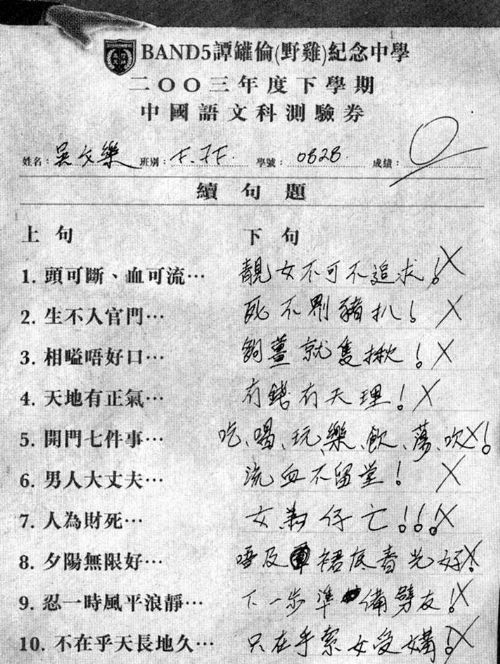 BAND5譚罐倫(野雞)紀念中學
二〇〇三年度下學期
中國語文科測驗券
姓名: 吳文樂 班別: F. 1F. 學號: 0828 成績: 0
續句題
上句 下句
1. 頭可斷、血可流… 靚女不可不追求!
2. 生不入官門… 死不劏豬扒!
3. 相嗌唔好口… 夠薑就隻揪!
4. 天地有正氣… 有錢有天理!
5. 開門七件事… 吃、喝、玩、樂、飲、蕩、吹!
6. 男人大丈夫… 流血不留堂!
7. 人為財死… 女為仔亡!!!
8. 夕陽無限好… 唔及裙底春光好!
9. 忍一時風平浪靜… 下一步準備劈友!
10. 不在乎天長地久… 只在乎索女受媾!